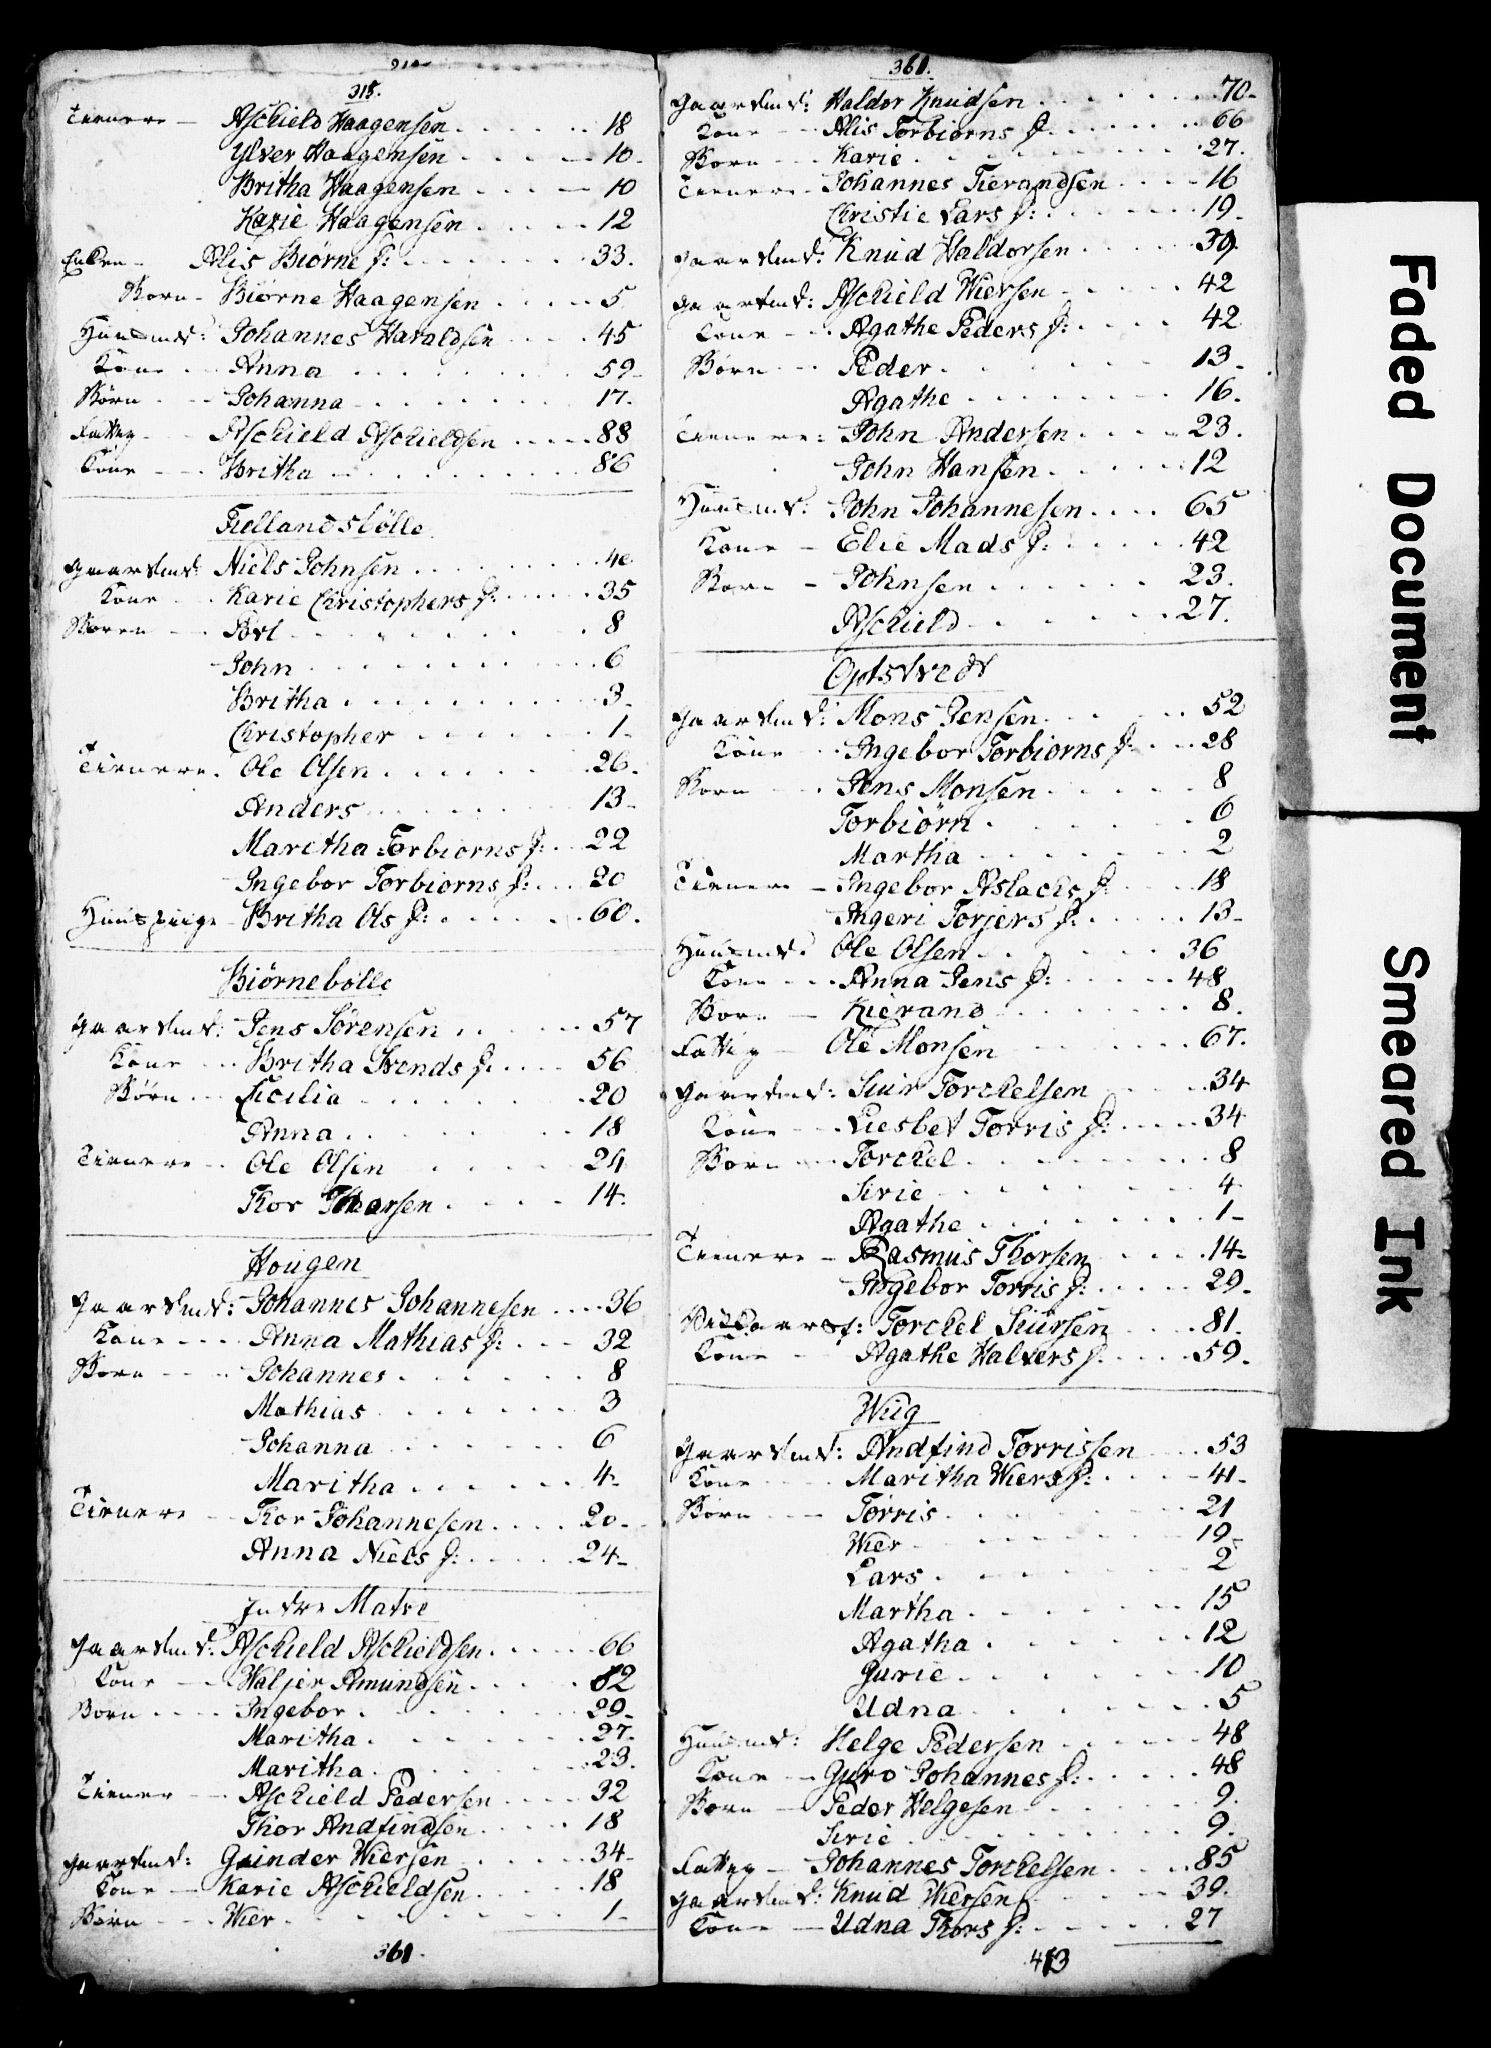 315.
Tienere - Aschield Haagensen 18
Ylver Haagensen 10
Britha Haagensen 10
Karie Haagensen 12
Enken - Alis Biørne D: 33.
Børn - Biørne Haagensen 5
Huusmd: Johannes Haraldsen 45
Kone - Anna 59
Børn - Johanna 17.
Fattig - Aschield Aschieldsen 88
Kone - Britha 86
Fiellandsbølle
gaardmd: Niels Johnsen 40
Kone - Karie Christophers D: 35
Børn - Povl 8
John 6
Britha 3
Christopher 1
Tienere. Ole Olsen 26.
Anders 13
Maritha Torbiorns D: 22
Ingebor Torbiorns D: 20
Huuspige - Britha Ols D: 60.
Biørnebølle
gaardmd: Jens Sørensen 57
Kone - Britha Svends D. 56
Børn - Cicilia 20
Anna 18
Tienere - Ole Olsen 24
Thor Thorsen 14.
Hougen
gaardmd: Johannes Johannesen 36
Kone - Anna Mathias D: 32
Børn - Johannes 8
Mathias 3
Johanna 6
Maritha 4
Tienere - Thor Johannesen 20
Anna Niels D: 24
Indre Matre
gaardmd: Aschield Aschieldsen 66
Kone - Waljer Amundsen 62
Børn - Ingebor 29
Maritha 27
Maritha 23.
Tiener - Aschield Pedersen 32
Thor Andfindsen 18
gaardmd: Guinder Wiersen 34
Kone - Karie Aschieldsen 18
Børn - Wier 1
361.
361.
gaardmd: Haldor Knudsen 70
Kone - Alis Torbiorns D. 66
Børn - Karie 27.
Tienere - Johannes Tierandsen 16
Christie Lars D: 19
gaardmd: Knud Haldorsen 39
gaardmd: Aschield Wiersen 42
Kone - Agathe Peders D: 42
Børn - Peder 13
Agathe 16.
Tienere: John Andersen 23.
John Hansen 12
Huusmd: John Johannesen 65
Kone - Elie Mads D: 42
Børn - Johnsen 23.
Aschield 27.
Optstvedt
gaardmd: Mons Jensen 52
Kone - Ingebor Torbiorns D: 28
Børn - Jens Monsen 8
Torbiørn 6
Martha 2
Tienere - Ingebor Aslachs D: 18
Ingeri Torjers D: 13
Huusmd: Ole Olsen 36
Kone - Anna Jens D: 48
Børn - Kierand 8.
Fattig - Ole Monsen 67.
gaardmd: Siur Torckelsen 34
Kone - Liesbet Torris D: 34
Børn - Torckel 8
Sirie 4
Agathe 1
Tienere - Rasmus Thorsen 14
Ingebor Torris D: 29
Torckel Siursen 81
Kone - Agathe Halvers D. 59
Wiig
gaardmd: Andfind Torrissen 53
Kone - Maritha Wiers D: 41
Børn - Torris 21
Wier 19
Lars 2
Martha 15
Agatha 12
Gurie 10
Udna 5
Huusmd: Helge Pedersen 48
Kone - Guro Johannes D: 48
Børn - Peder Helgesen 9.
Sirie 9.
Fattig - Johannes Torckelsen 85
gaardmd: Knud Wiersen 39.
Kone - Udna Thors D: 27
413
Faded Document
Smeared Ink